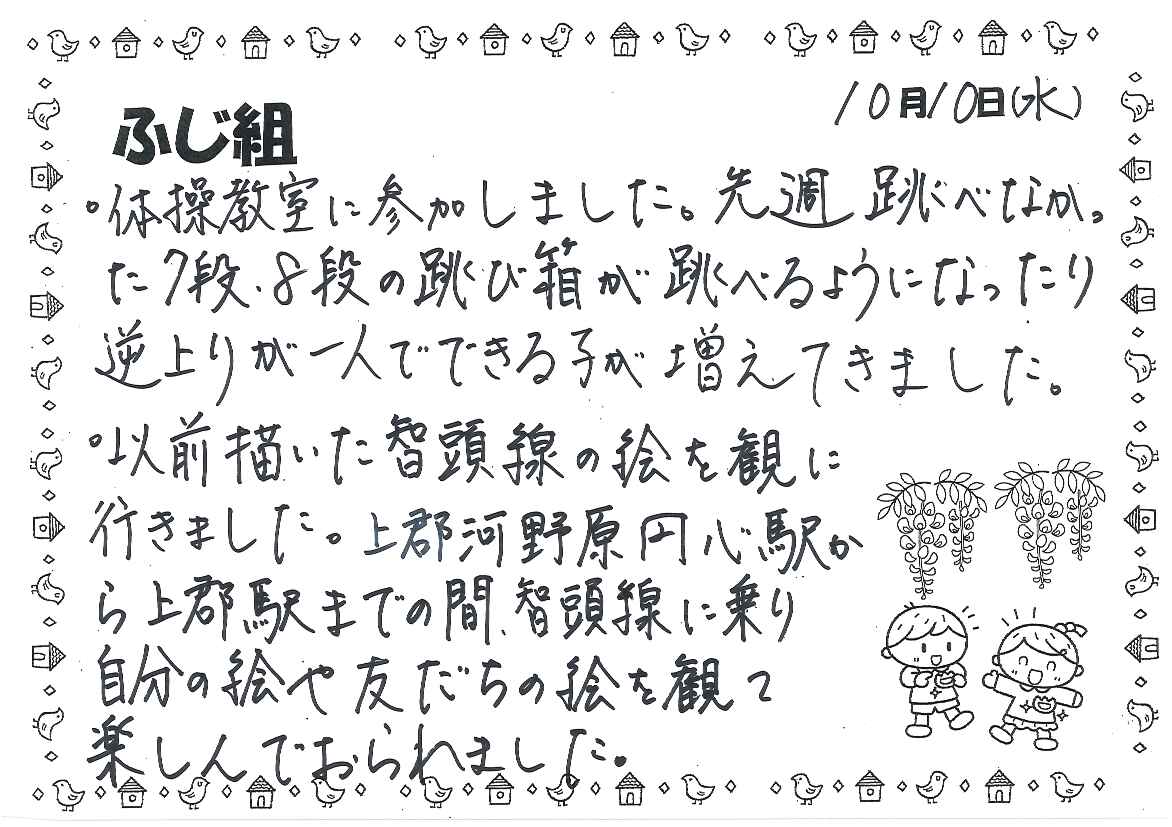 10月10日(水)
ふじ組
・体操教室に参加しました。先週 跳べなかっ
た7段、8段の跳び箱が跳べるようになったり
逆上りが一人でできる子が増えてきました。
・以前描いた智頭線の絵を観に
行きました。上郡河野原円心駅か
ら上郡駅までの間、智頭線に乗り
自分の絵や友だちの絵を観て
楽しんでおられました。